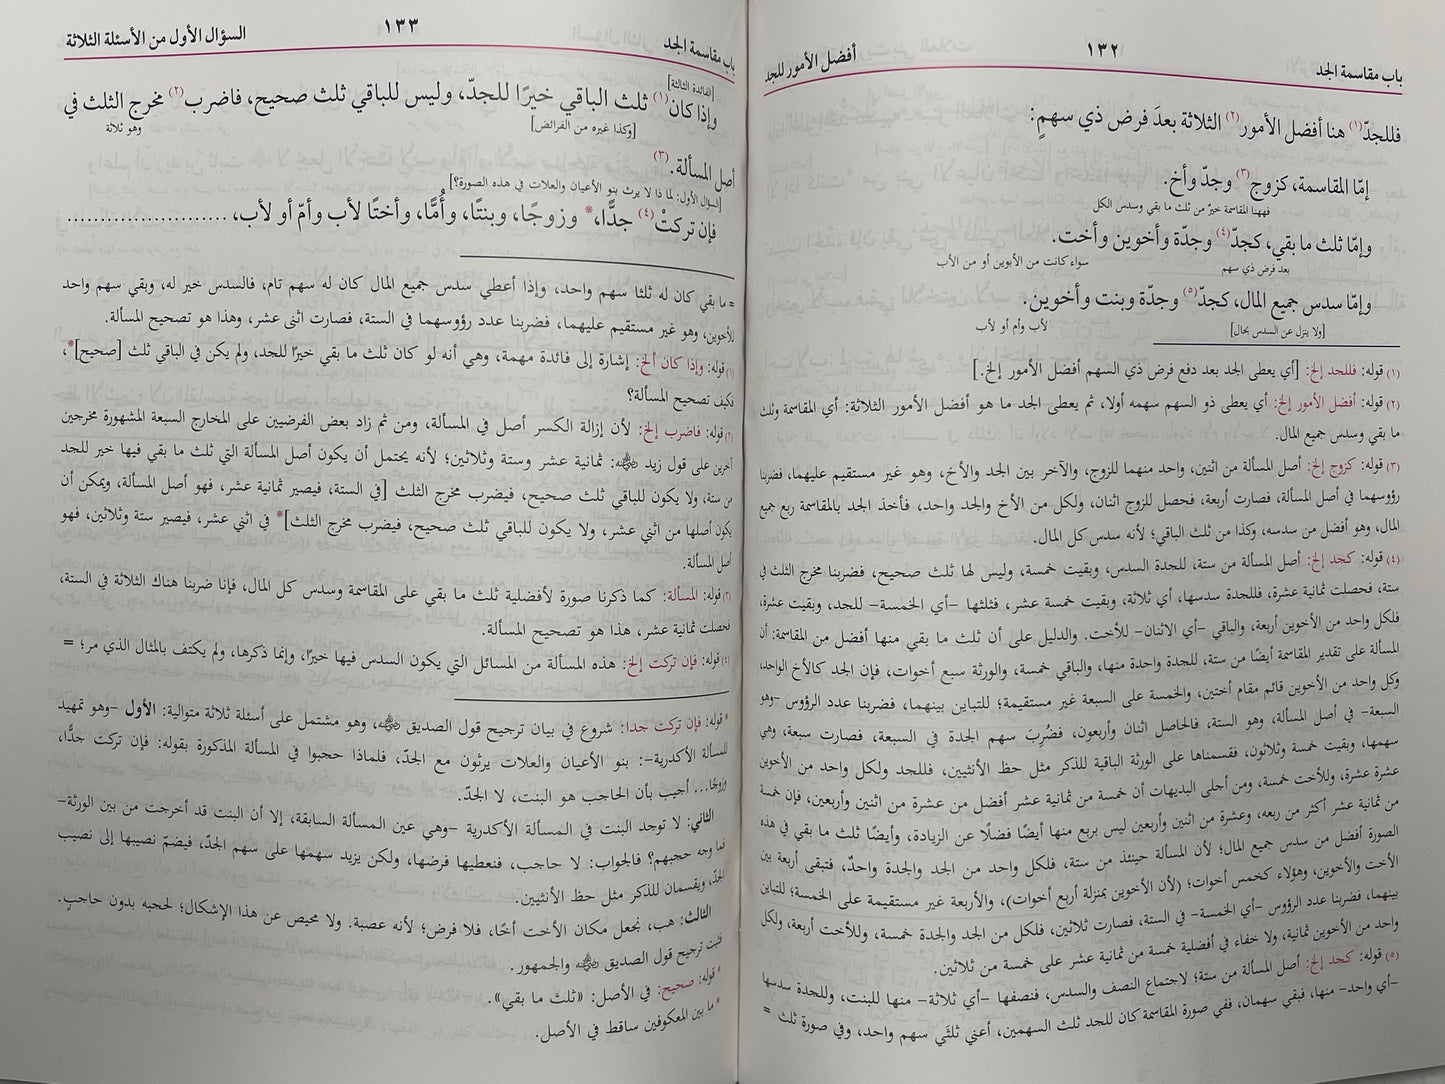 باب مقاسمة الجد
١٣٢
أفضل الأمور للجد
فللجدّ(١) هنا أفضل الأمور(٢) الثلاثة بعدَ فرض ذي سهمٍ:
إمّا المقاسمة، كزوج(٣) وجدّ وأخ.
فههنا المقاسمة خيرٌ من ثلث ما بقي وسدس الكل
وإمّا ثلث ما بقي، كجدّ(٤) وجدّة وأخوين وأخت.
بعد فرض ذي سهم
سواء كانت من الأبوين أو من الأب
وإمّا سدس جميع المال، كجدّ(٥) وجدّة وبنت وأخوين.
[ولا ينزل عن السدس بحال]
لأب وأم أو لأب
(١) قوله: فللجد إلخ: [أي يعطى الجد بعد دفع فرض ذي السهم أفضل الأمور إلخ.]
(٢) قوله: أفضل الأمور إلخ: أي يعطى ذو السهم سهمه أولا، ثم يعطى الجد ما هو أفضل الأمور الثلاثة: أي المقاسمة وثلث
ما بقي وسدس جميع المال.
(٣) قوله: كزوج إلخ: أصل المسألة من اثنين، واحد منهما للزوج، والآخر بين الجد والأخ، وهو غير مستقيم عليهما، فضربنا
رؤوسهما في أصل المسألة، فصارت أربعة، فحصل للزوج اثنان، ولكل من الأخ والجد واحد، فأخذ الجد بالمقاسمة ربع جميع
المال، وهو أفضل من سدسه، وكذا من ثلث الباقي؛ لأنه سدس كل المال.
(٤) قوله: كجد إلخ: أصل المسألة من ستة، للجدة السدس، وبقيت خمسة، وليس لها ثلث صحيح، فضربنا مخرج الثلث في
ستة، فحصلت ثمانية عشرة، فللجدة سدسها، أي ثلاثة، وبقيت خمسة عشر، فثلثها -أي الخمسة- للجد، وبقيت عشرة،
فلكل واحد من الأخوين أربعة، والباقي -أي الاثنان- للأخت. والدليل على أن ثلث ما بقي منها أفضل من المقاسمة: أن
المسألة على تقدير المقاسمة أيضًا من ستة، للجدة واحدة منها، والباقي خمسة، والورثة سبع أخوات، فإن الجد كالأخ الواحد،
وكل واحد من الأخوين قائم مقام أختين، والخمسة على السبعة غير مستقيمة؛ للتباين بينهما، فضربنا عدد الرؤوس -وهو
السبعة- في أصل المسألة، وهو الستة، فالحاصل اثنان وأربعون، فضُرِبَ سهم الجدة في السبعة، فصارت سبعة، وهي
سهمها، وبقيت خمسة وثلاثون، فقسمناها على الورثة الباقية للذكر مثل حظ الأنثيين، فللجد ولكل واحد من الأخوين
عشرة عشرة، وللأخت خمسة، ومن أجلى البديهات أن خمسة من ثمانية عشر أفضل من عشرة من اثنين وأربعين، فإن خمسة
من ثمانية عشر أكثر من ربعه، وعشرة من اثنين وأربعين ليس بربع منها أيضًا فضلًا عن الزيادة، وأيضًا ثلث ما بقي في هذه
الصورة أفضل من سدس جميع المال؛ لأن المسألة حينئذ من ستة، فلكل واحد من الجد والجدة واحدٌ، فتبقى أربعة بين
الأخت والأخوين، وهؤلاء كخمس أخوات؛ (لأن الأخوين بمنزلة أربع أخوات)، والأربعة غير مستقيمة على الخمسة؛ للتباين
بينهما، فضربنا عدد الرؤوس -أي الخمسة- في الستة، فصارت ثلاثين، فلكل من الجد والجدة خمسة، وللأخت أربعة، ولكل
واحد من الأخوين ثمانية، ولا خفاء في أفضلية خمسة من ثمانية عشر على خمسة من ثلاثين.
(٥) قوله: كجد إلخ: أصل المسألة من ستة؛ لاجتماع النصف والسدس، فنصفها -أي ثلاثة- منها للبنت، وللجدة سدسها
-أي واحد- منها، فبقي سهمان، ففي صورة المقاسمة كان للجد ثلث السهمين، أعني ثلثَي سهم واحد، وفي صورة ثلث =
باب مقاسمة الجد
١٣٣
السؤال الأول من الأسئلة الثلاثة
[الفائدة الثالثة]
وإذا كان(١) ثلث الباقي خيرًا للجدّ، وليس للباقي ثلث صحيح، فاضرب(٢) مخرج الثلث في
[وكذا غيره من الفرائض]
وهو ثلاثة
أصل المسألة.(٣)
[السؤال الأول: لما ذا لا يرث بنو الأعيان والعلات في هذه الصورة؟]
فإن تركتْ(٤) جدًّا،* وزوجًا، وبنتًا، وأُمًّا، وأختًا لأب وأمّ أو لأب، ........................
= ما بقي كان له ثلثا سهم واحد، وإذا أعطي سدس جميع المال كان له سهم تام، فالسدس خير له، وبقي سهم واحد
للأخوين، وهو غير مستقيم عليهما، فضربنا عدد رؤوسهما في الستة، فصارت اثنى عشر، وهذا هو تصحيح المسألة.
(١) قوله: وإذا كان ألخ: إشارة إلى فائدة مهمة، وهي أنه لو كان ثلث ما بقي خيرًا للجد، ولم يكن في الباقي ثلث [صحيح]*،
فكيف تصحيح المسألة؟
(٢) قوله: فاضرب إلخ: لأن إزالة الكسر أصل في المسألة، ومن ثم زاد بعض الفرضيين على المخارج السبعة المشهورة مخرجين
آخرين على قول زيد ﷺ: ثمانية عشر وستة وثلاثين؛ لأنه يحتمل أن يكون أصل المسألة التي ثلث ما بقي فيها خير للجد
من ستة، ولا يكون للباقي ثلث صحيح، فيضرب مخرج الثلث [في الستة، فيصير ثمانية عشر، فهو أصل المسألة، ويمكن أن
يكون أصلها من اثني عشر، ولا يكون للباقي ثلث صحيح، فيضرب مخرج الثلث]* في اثني عشر، فيصير ستة وثلاثين، فهو
أصل المسألة.
(٣) قوله: المسألة: كما ذكرنا صورة لأفضلية ثلث ما بقي على المقاسمة وسدس كل المال، فإنا ضربنا هناك الثلاثة في الستة،
فحصلت ثمانية عشر، هذا هو تصحيح المسألة.
(٤) قوله: فإن تركت إلخ: هذه المسألة من المسائل التي يكون السدس فيها خيرًا، وإنما ذكرها، ولم يكتف بالمثال الذي مر؛ =
* قوله: فإن تركت جدا: شروع في بيان ترجيح قول الصديق، وهو مشتمل على أسئلة ثلاثة متوالية: الأول -وهو تمهيد
للمسألة الأكدرية-: بنو الأعيان والعلات يرثون مع الجدّ، فلماذا حجبوا في المسألة المذكورة بقوله: فإن تركت جدًّا،
وزوجًا... أجيب بأن الحاجب هو البنت، لا الجدّ.
الثاني: لا توجد البنت في المسألة الأكدرية -وهي عين المسألة السابقة، إلا أن البنت قد أخرجت من بين الورثة-
فما وجه حجبهم؟ فالجواب: لا حاجب، فنعطيها فرضها، ولكن يزيد سهمها على سهم الجدّ، فيضمّ نصيبها إلى نصيب
الجدّ، ويقسمان للذكر مثل حظ الأنثيين.
الثالث: هب، نجعل مكان الأخت أخًا، فلا فرض؛ لأنه عصبة. ولا محيص عن هذا الإشكال؛ لحجبه بدون حاجبٍ.
فثبت ترجيح قول الصديق والجمهور.
* قوله: صحيح: في الأصل: «ثلث ما بقي».
* ما بين المعكوفين ساقط في الأصل.